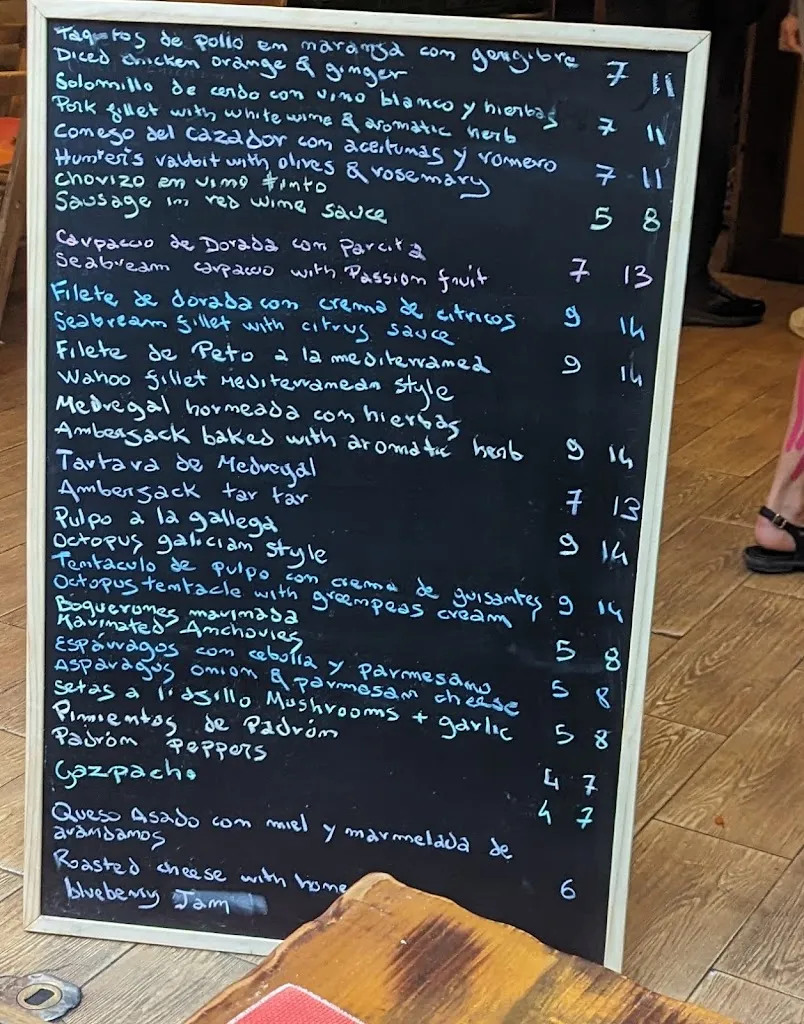 Taquetos de pollo em naranja com gengibre
Diced chicken orange & ginger 7 11
Solomillo de cerdo con vino blanco y hierbas
Pork fillet with white wine & aromatic herb 7 11
Conego del cazador com aceitumas y romero
Hunter's rabbit with olives & rosemary 7 11
Chorizo em vimo tinto
Sausage in red wine sauce 5 8
Carpaccio de Dorada com Parcita
Seabream carpaccio with Passion fruit 7 13
Filete de dorada con crema de citricos
Seabream fillet with citrus sauce 9 14
Filete de Peto a la mediterramea
Wahoo fillet Mediterramean style 9 14
Medregal horneada com hierbas
Amberjack baked with aromatic herb 9 14
Tartara de Medregal
Amberjack tar tar 7 13
Pulpo a la gallega
Octopus galiciam style 9 14
Temtaculo de pulpo com crema de guisamtes
Octopus temtacle with greempeas cream 9 14
Boquerones marimada
Marimated Amchovies 5 8
Espárragos com cebolla y parmesamo
Asparagus omiom & parmesam cheese 5 8
Setas a l'ajillo Mushrooms + garlic 5 8
Pimientos de Padróm
Padróm Peppers 4 7
Gazpacho 4 7
Queso Asado com miel y marmelada de
arámdamos
Roasted cheese with home 6
blueberry Jam